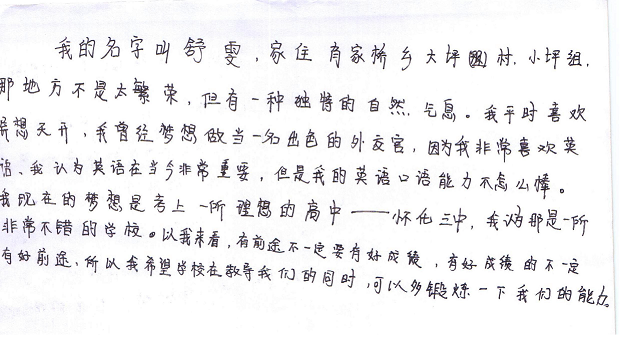 我的名字叫舒雯,家住肖家桥乡大坪村,小坪组,
那地方不是太繁荣,但有一种独特的自然气息。我平时喜欢
异想天开,我曾经梦想做当一名出色的外交官,因为我非常喜欢英
语、我认为英语在当今非常重要,但是我的英语口语能力不怎么棒。
我现在的梦想是考上一所理想的高中——怀化三中,我认为那是一所
非常不错的学校。以我来看,有前途不一定要有好成绩,有好成绩的不一定
有好前途、所以我希望学校在教导我们的同时,可以多锻炼一下我们的能力。